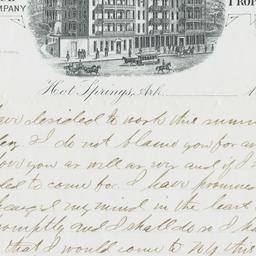 COMPANY
PROP
Hot Springs, Ark.
ave decided to work this summ
day. I do not blame you for an
love you as well as ever and if I
ded to come for. I have promised
changed my mind in the least
promptly and I shall do so I h
that I would come to N.Y. this